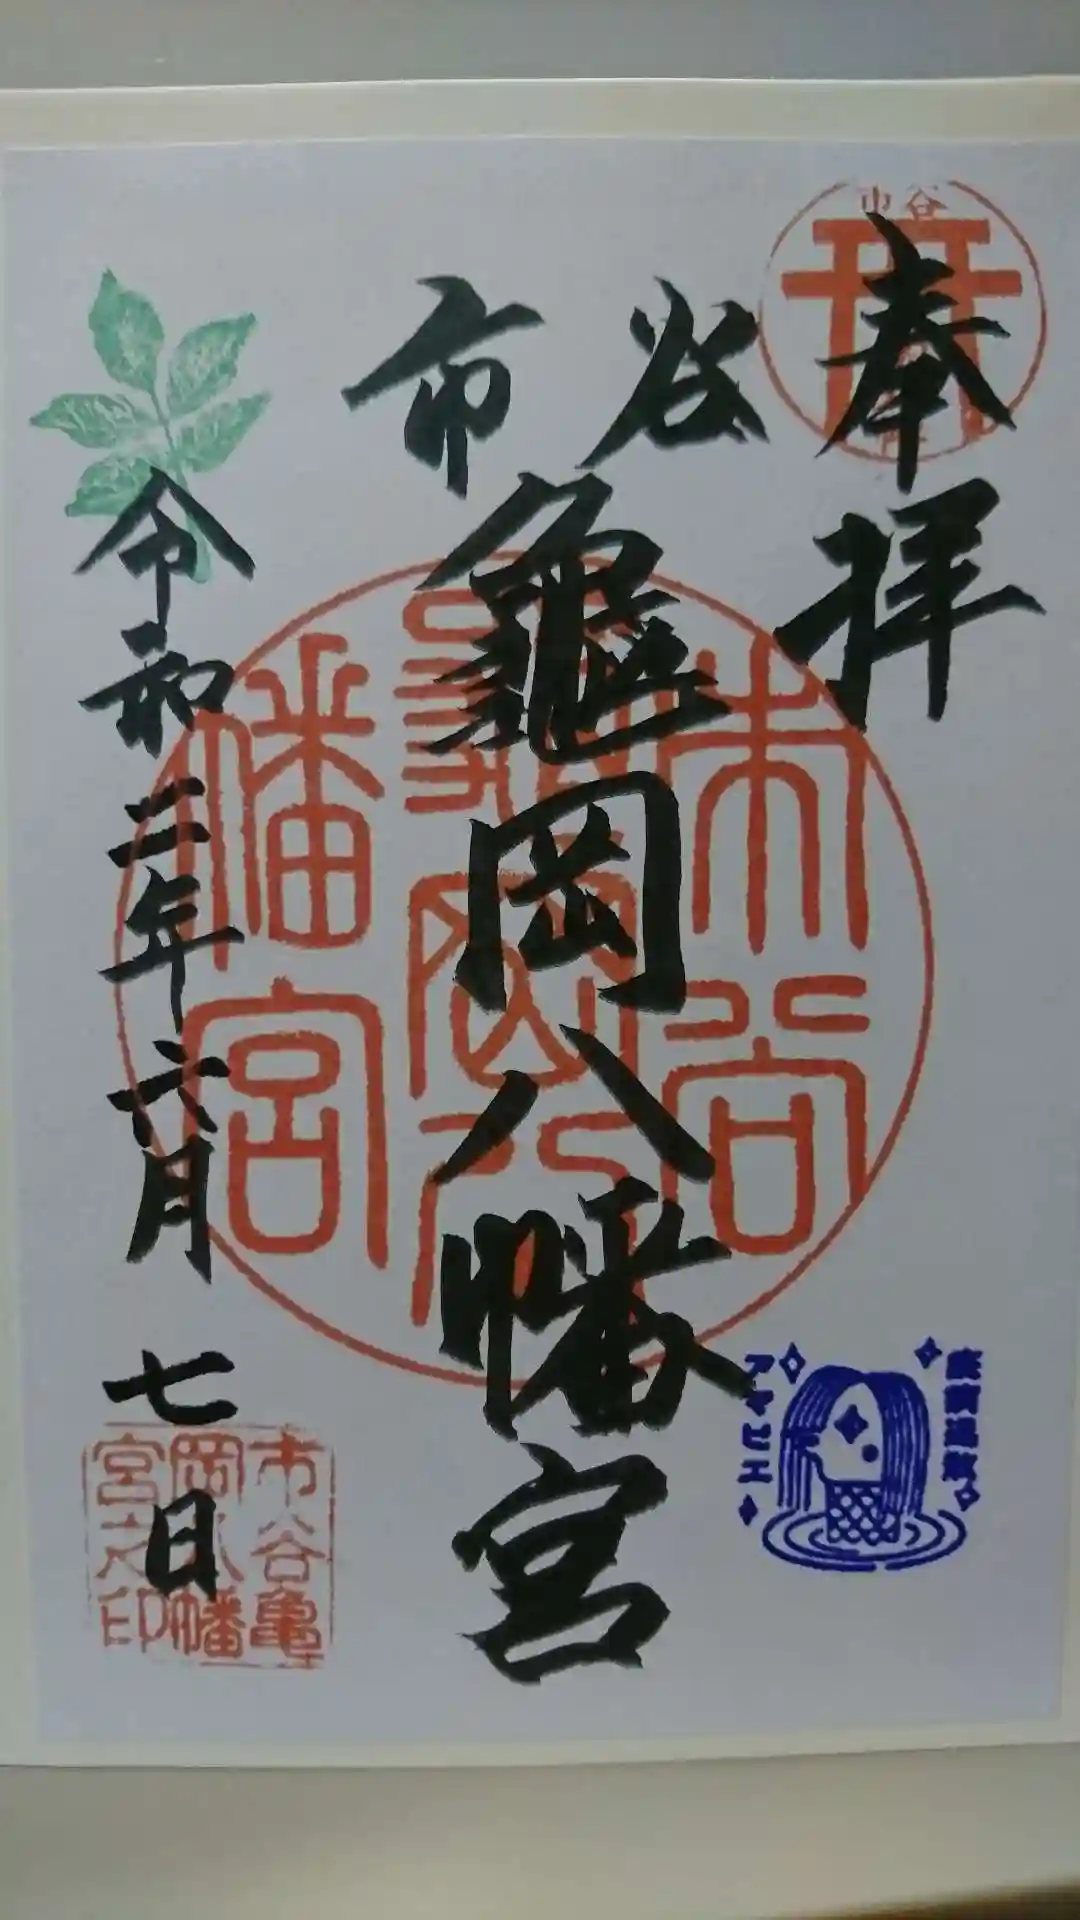 奉拝
市谷
龜岡八幡宮
令和二年六月七日
市谷
市谷
龜岡八
幡宮
市谷亀
岡八幡
宮之印
アマビエ